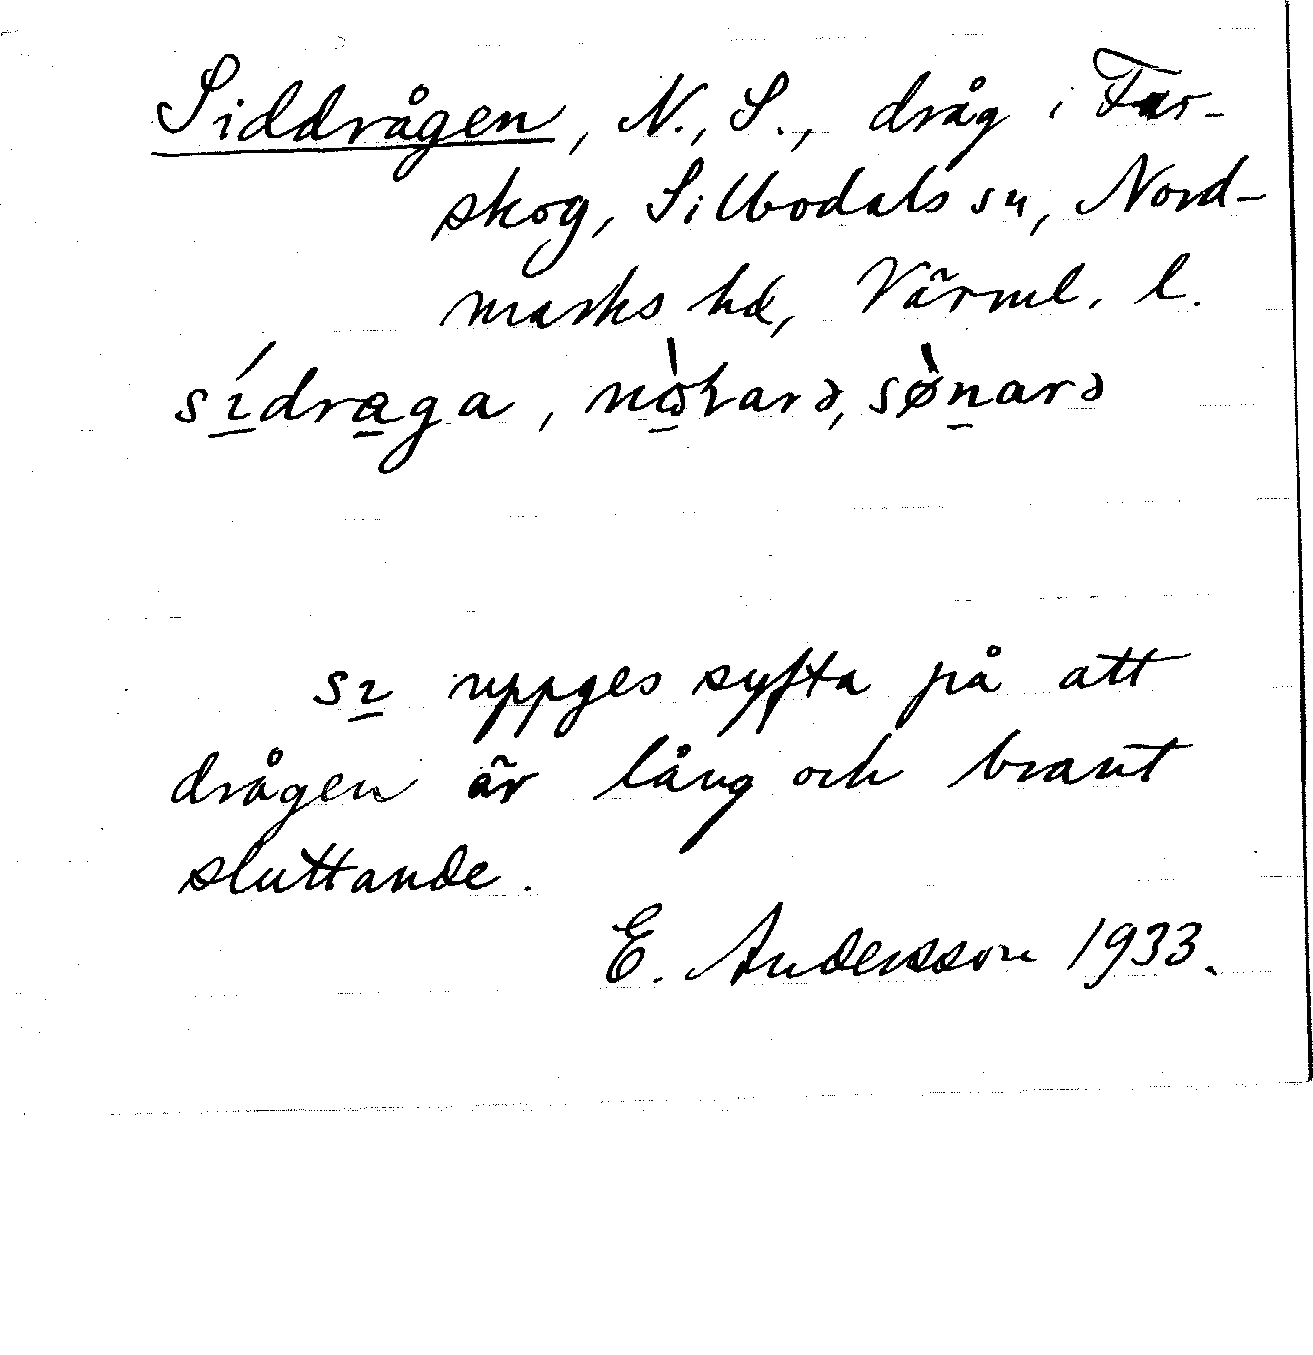 Siddrågen, N., S., dråg i Far-
skog, Silbodals sn, Nord-
marks hd, Värml. l.
sı́draga, nòɷrarə, sø̀narə
sı uppges syfta på att
drågen är lång och brant
sluttande.
E. Andersson 1933.